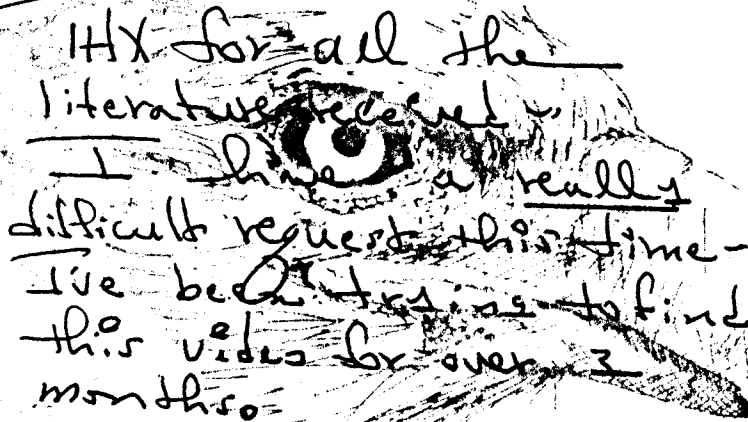 THX for all the
literature received –
I have a really
difficult request this time –
I've been trying to find
this video for over 3
months.